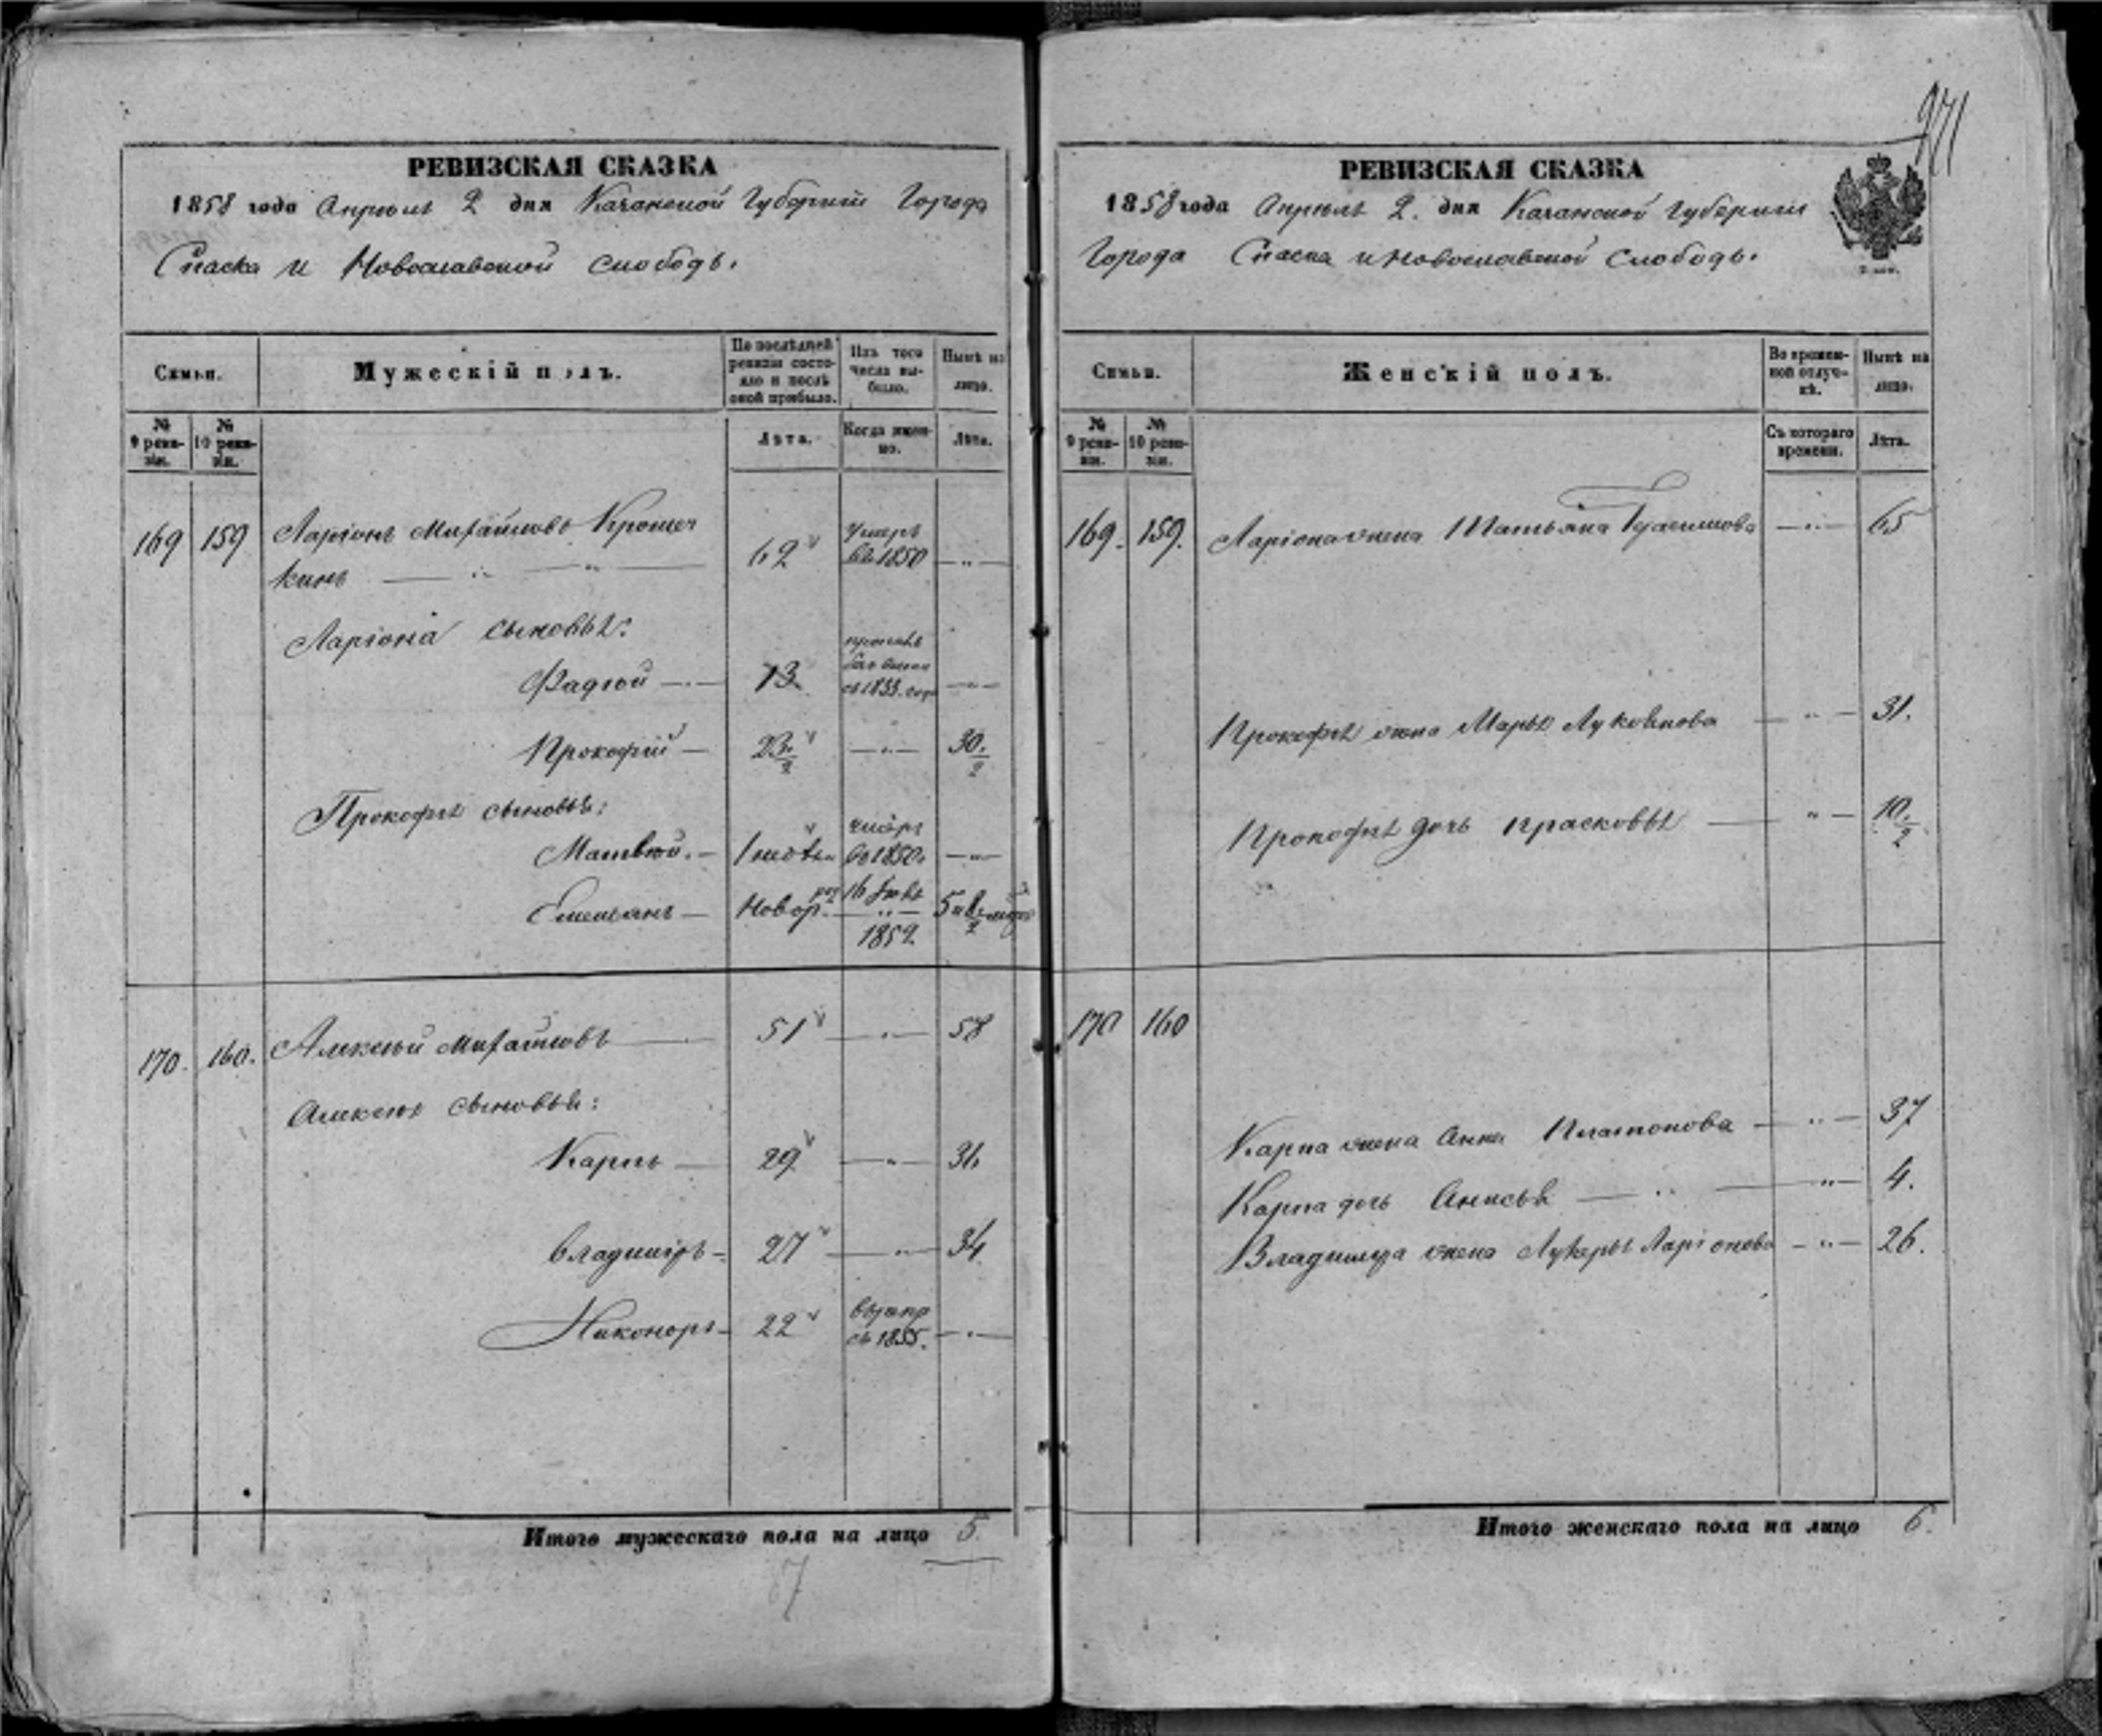 971
РЕВИЗСКАЯ СКАЗКА
1858 года Апрѣля 2 дня Казанской Губерніи Города
Спаска и Новоспаской слободы.
Семьи.
Мужескій полъ.
По послѣдней ревизіи состояло и послѣ оной прибыло.
Изъ того числа выбыло.
Нынѣ на лицо.
№ 9 ревизіи.
№ 10 ревизіи.
Лѣта.
Когда именно.
Лѣта.
169 159 Ларіонъ Михайловъ Крошеч
кинъ 62 умеръ въ 1850
Ларіона сыновья:
Фадѣй 13 съ 1833. года
Прокофій 23 1/2 30 1/2
Прокофья сыновья:
Матвѣй 1 1850
Емельянъ Новор. 16 1852 5
170. 160. Алексѣй Михайловъ 51 58
Алексѣя сыновья:
Карпъ 29 36
Владиміръ 27 34
Никоноръ 22 въ 1855.
Итого мужескаго пола на лицо 5.
67
РЕВИЗСКАЯ СКАЗКА
1858 года Апрѣля 2. дня Казанской Губерніи
Города Спаска и Новоспаской Слободы.
Семьи.
Женскій полъ.
Во временной отлучкѣ.
Нынѣ на лицо.
№ 9 ревизіи.
№ 10 ревизіи.
Съ котораго времени.
Лѣта.
169. 159. Ларіона жена Татьяна Герасимова 65
Прокофья жена Марья Луковнова 31.
Прокофья дочь Прасковья 10. 1/2
170 160
Карпа жена Анна Платонова 37
Карпа дочь Анисья 4.
Владимира жена Лукерья Ларіонова 26.
Итого женскаго пола на лицо 6.